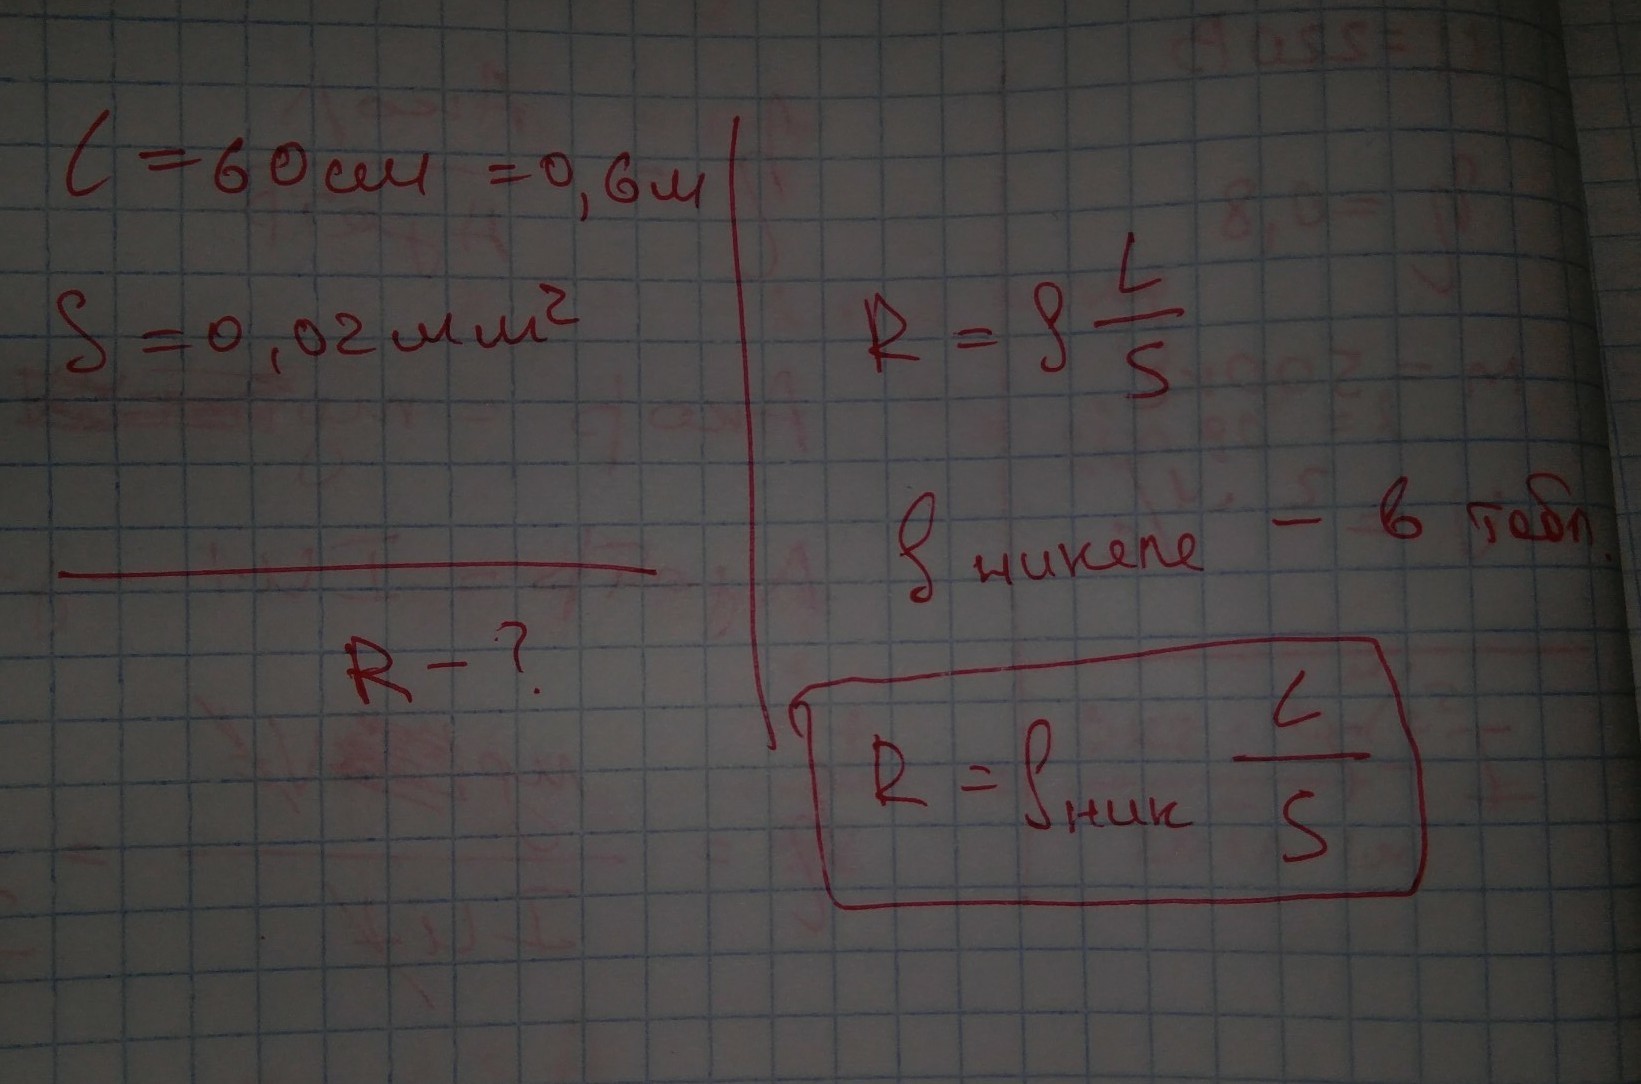 l = 60 см = 0,6 м
S = 0,02 мм²
R - ?
R = ρ L/S
ρ никеле - в табл.
R = ρ ник L/S